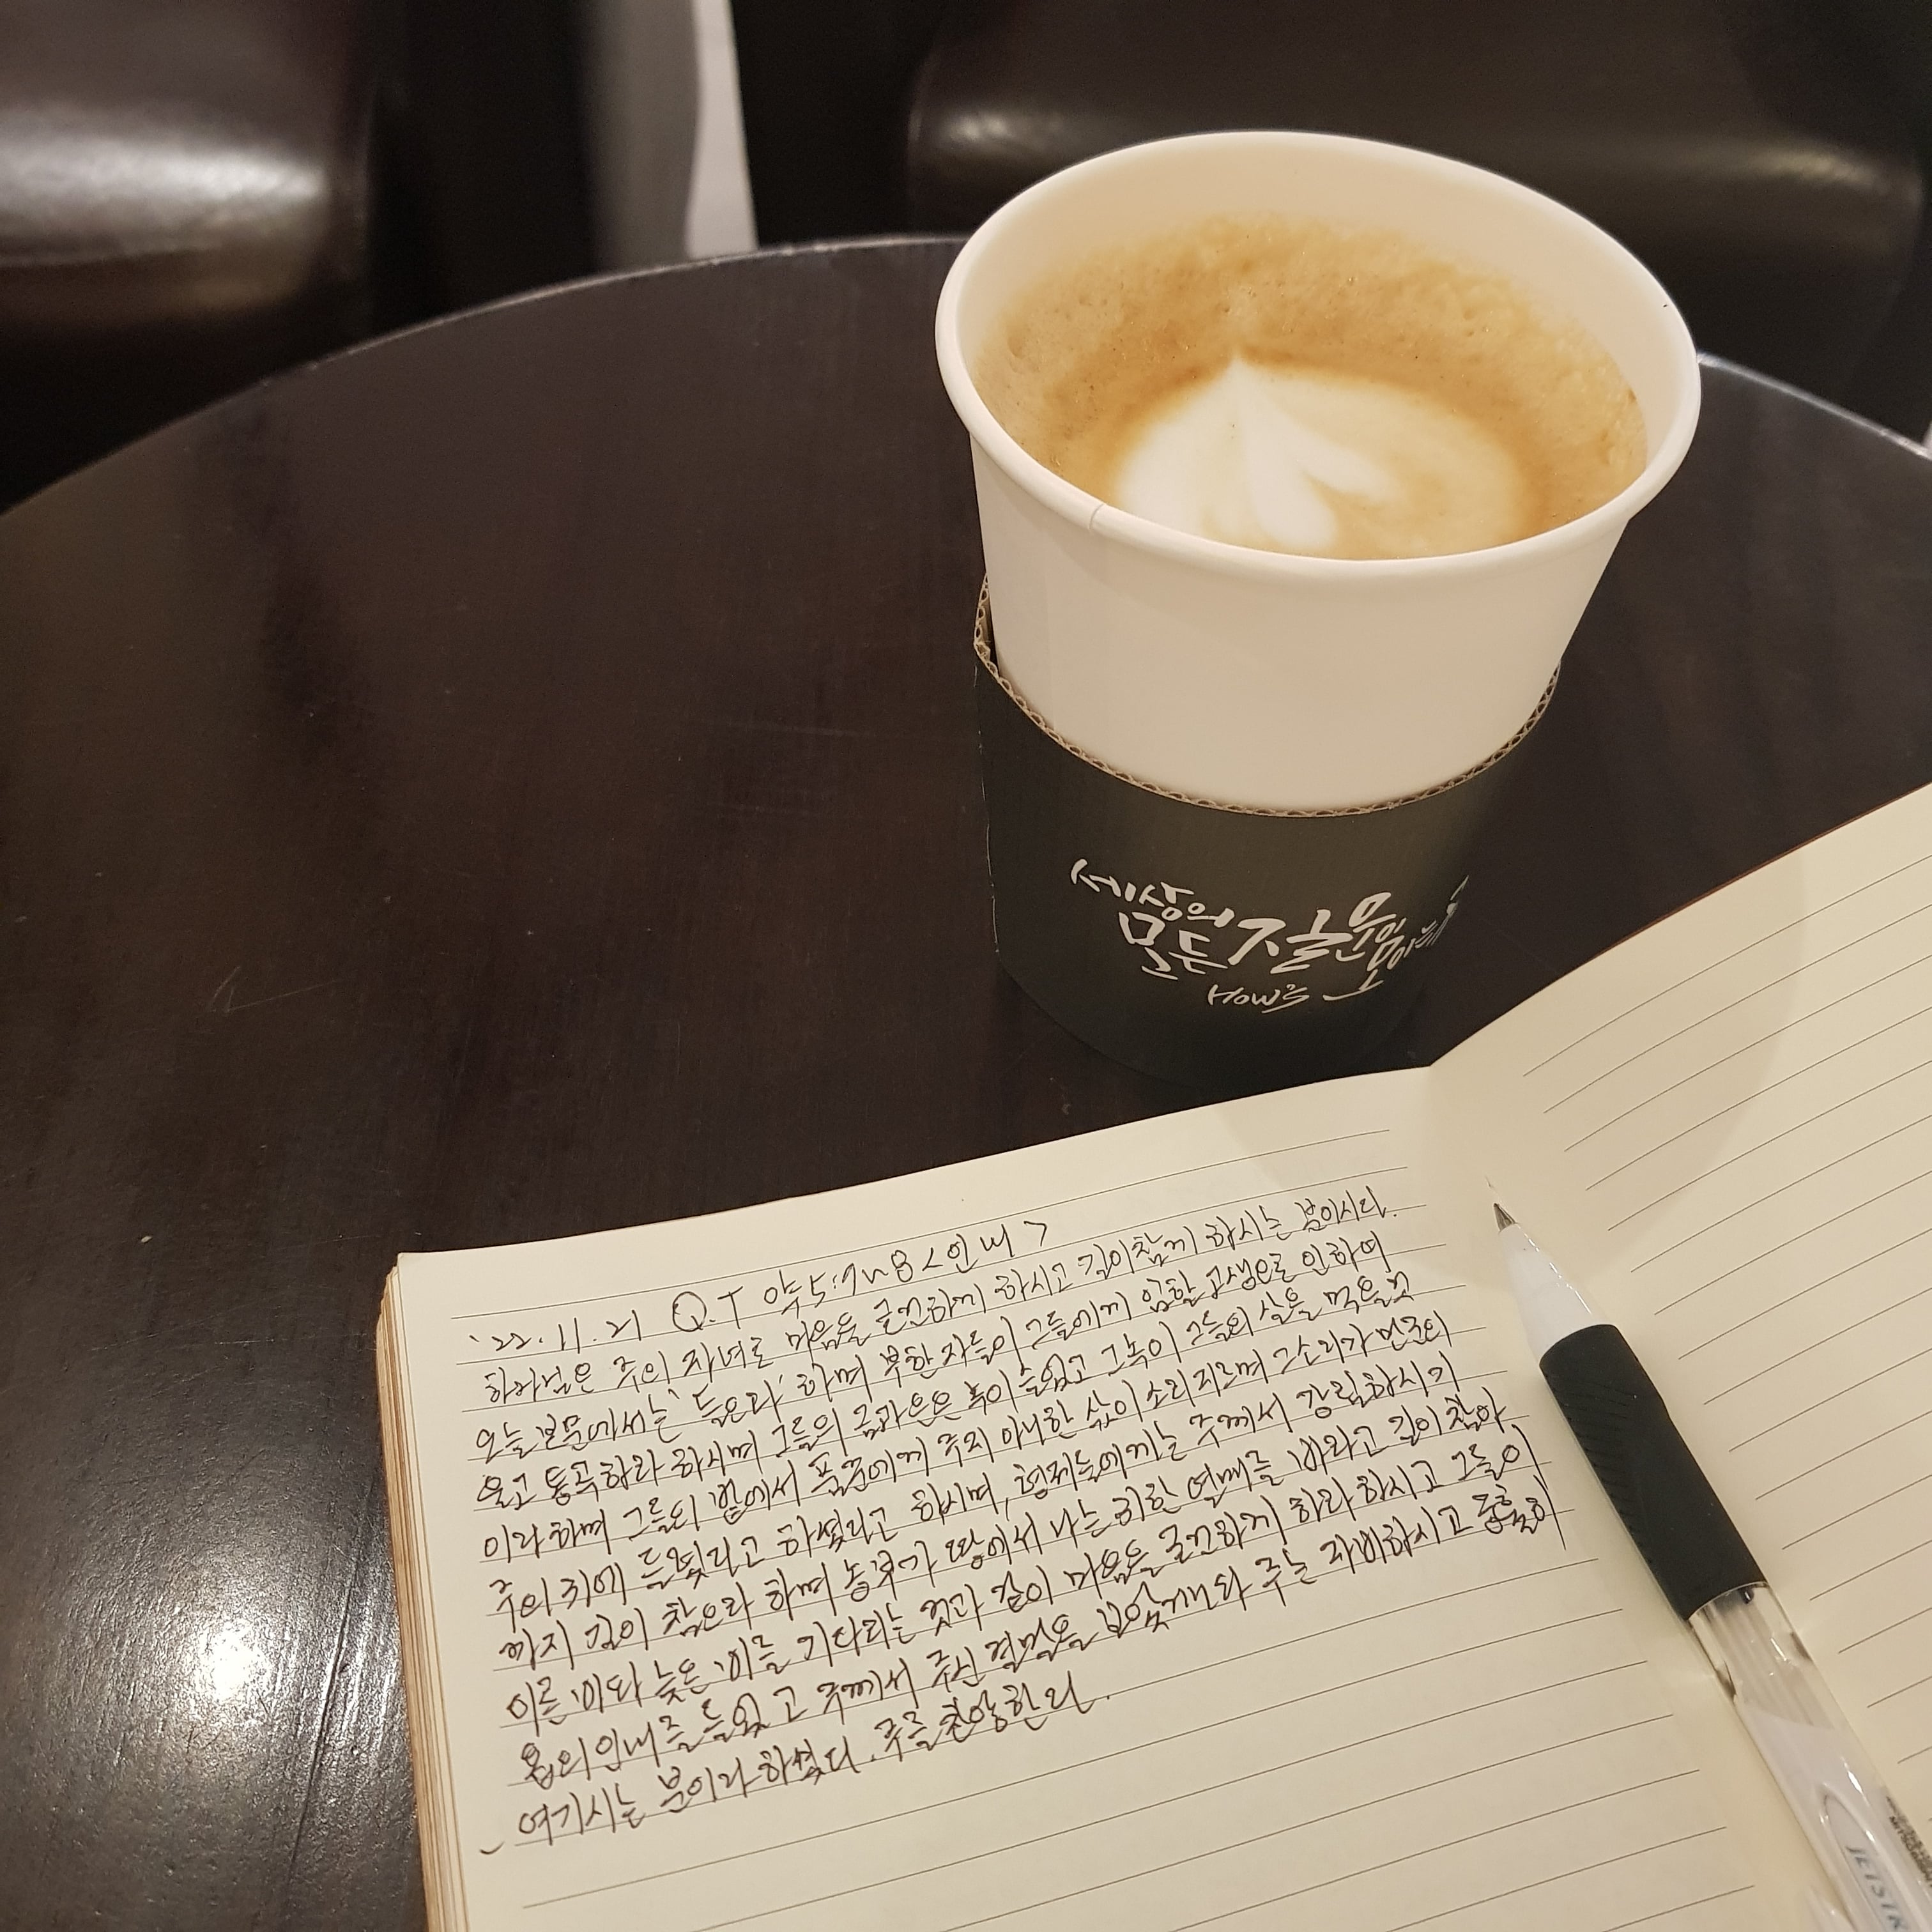 세상의
모든 질문의
How's
'22.11.21 Q.T 약5:7~8 <인내>
하나님은 주의 자녀로 마음을 굳건하게 하시고 길이참게 하시는 분이시다.
오늘 본문에서는 '들으라' 하며 부한 자들이 그들에게 임할 고생으로 인하여
울고 통곡하라 하시며 그들의 금과은은 녹이 슬었고 그녹이 그들의 살을 먹을것
이라 하며 그들의 밭에서 품꾼에게 주지 아니한 삯이 소리지르며 그소리가 만군의
주의 귀에 들렸다고 하셨다고 하시며, 형제들에게는 주께서 강림하시기
까지 길이 참으라 하며 농부가 땅에서 나는 귀한 열매를 바라고 길이 참아
이른 비와 늦은 비를 기다리는 것과 같이 마음을 굳건하게 하라 하시고 그들이
욥의 인내를 들었고 주께서 주신 결말을 보았거니와 주는 자비하시고 긍휼히
여기시는 분이라 하셨다. 주를 찬양한다.